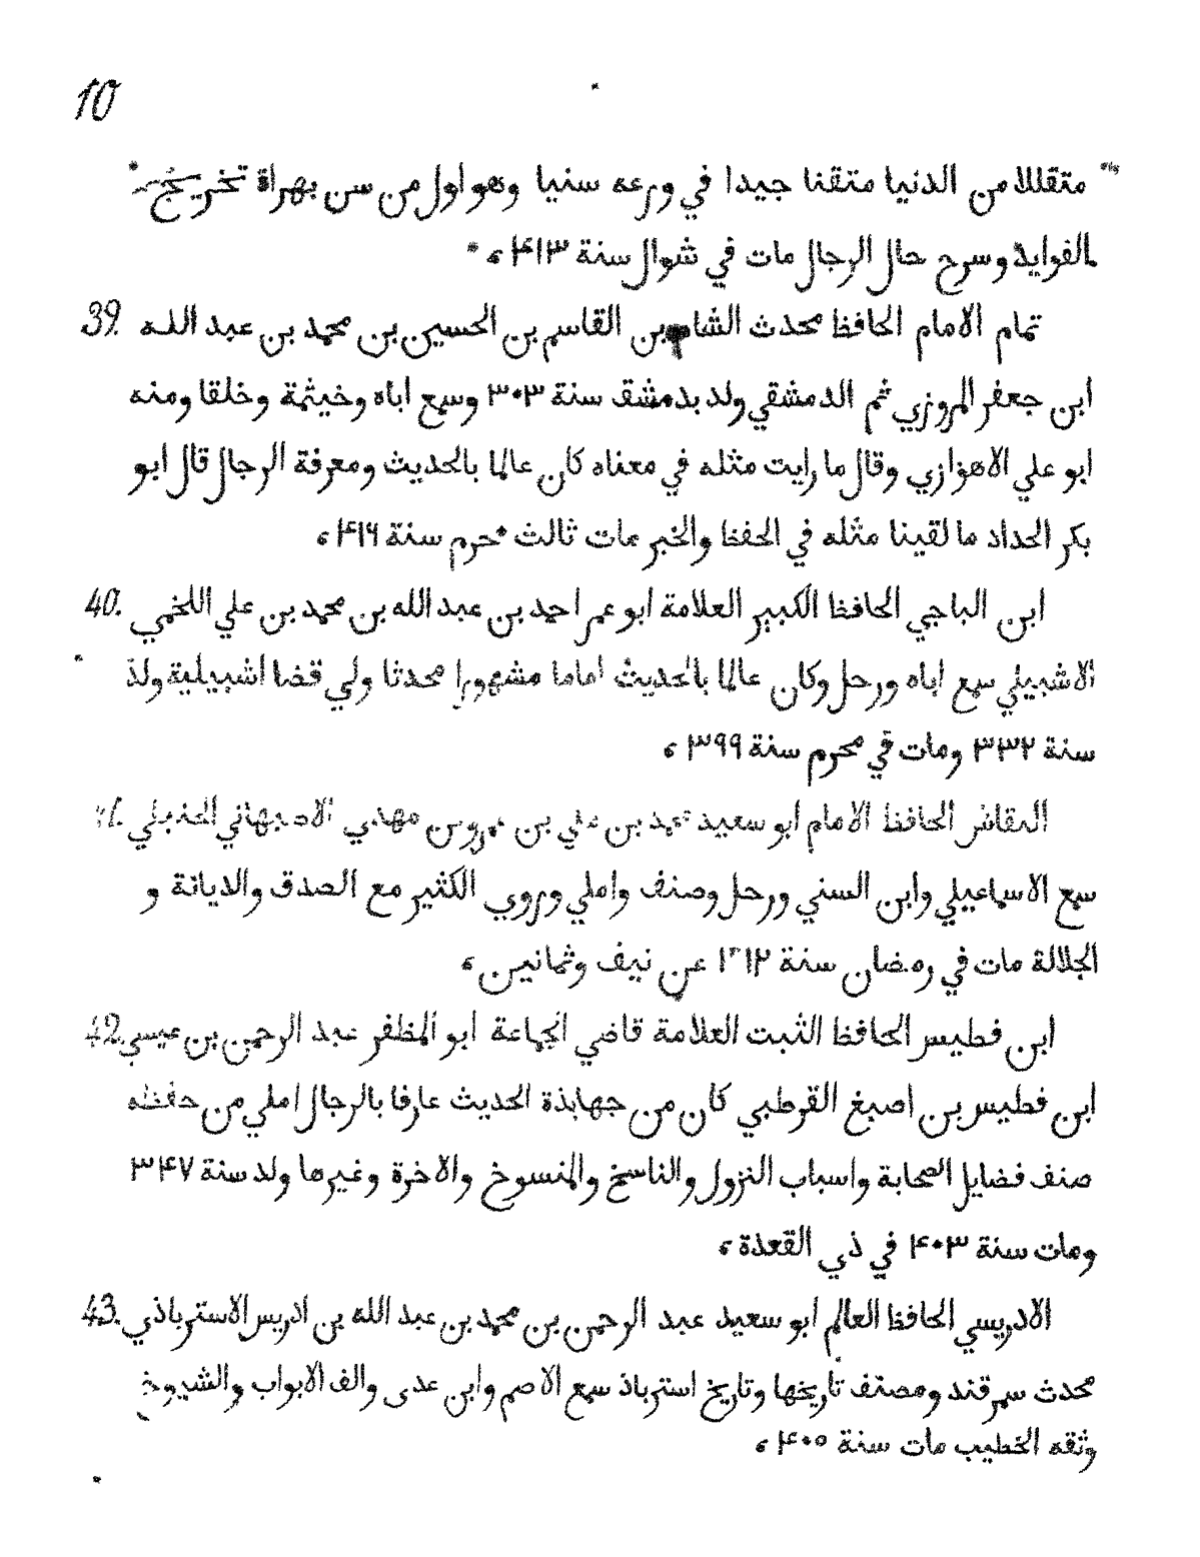 10
متقللا من الدنيا متقنا جيدا في ورعه سنيا وهو اول من سن بهراة تخريج
الفوايد وسرح حال الرجال مات في شوال سنة ۴۱۳ ،
39. تمام الامام الحافظ محدث الشام بن القاسم بن الحسين بن محمد بن عبد الله
ابن جعفر المروزي ثم الدمشقي ولد بدمشق سنة ۳۰۳ وسمع اباه وخيثمة وخلقا ومنه
ابو علي الاهوازي وقال ما رايت مثله في معناه كان عالما بالحديث ومعرفة الرجال قال ابو
بكر الحداد ما لقينا مثله في الحفظ والخبر مات ثالث محرم سنة ۴۱۴ ،
40. ابن الباجي الحافظ الكبير العلامة ابو عمر احمد بن عبد الله بن محمد بن علي اللخمي
الاشبيلي سمع اباه ورحل وكان عالما بالحديث اماما مشهورا محدثا ولي قضا اشبيلية ولد
سنة ۳۳۲ ومات في محرم سنة ۳۹۹ ،
النقاش الحافظ الامام ابو سعيد محمد بن علي بن عمرو بن مهدي الاصبهاني الحنبلي
سمع الاسماعيلي وابن السني ورحل وصنف واملي وروي الكثير مع الصدق والديانة و
الجلالة مات في رمضان سنة ۴۱۲ عن نيف وثمانين ،
42. ابن فطيس الحافظ الثبت العلامة قاضي الجماعة ابو المظفر عبد الرحمن بن عيسي
ابن فطيس بن اصبغ القرطبي كان من جهابذة الحديث عارفا بالرجال املي من حفظه
صنف فضايل الصحابة واسباب النزول والناسخ والمنسوخ والاخرة وغيرها ولد سنة ۳۴۷
ومات سنة ۴۰۳ في ذي القعدة ،
43. الادريسي الحافظ العالم ابو سعيد عبد الرحمن بن محمد بن عبد الله بن ادريس الاستراباذي
محدث سمرقند ومصنف تاريخها وتاريخ استرباذ سمع الاصم وابن عدى والف الابواب والشيوخ
وثقه الخطيب مات سنة ۴۰۵ ،